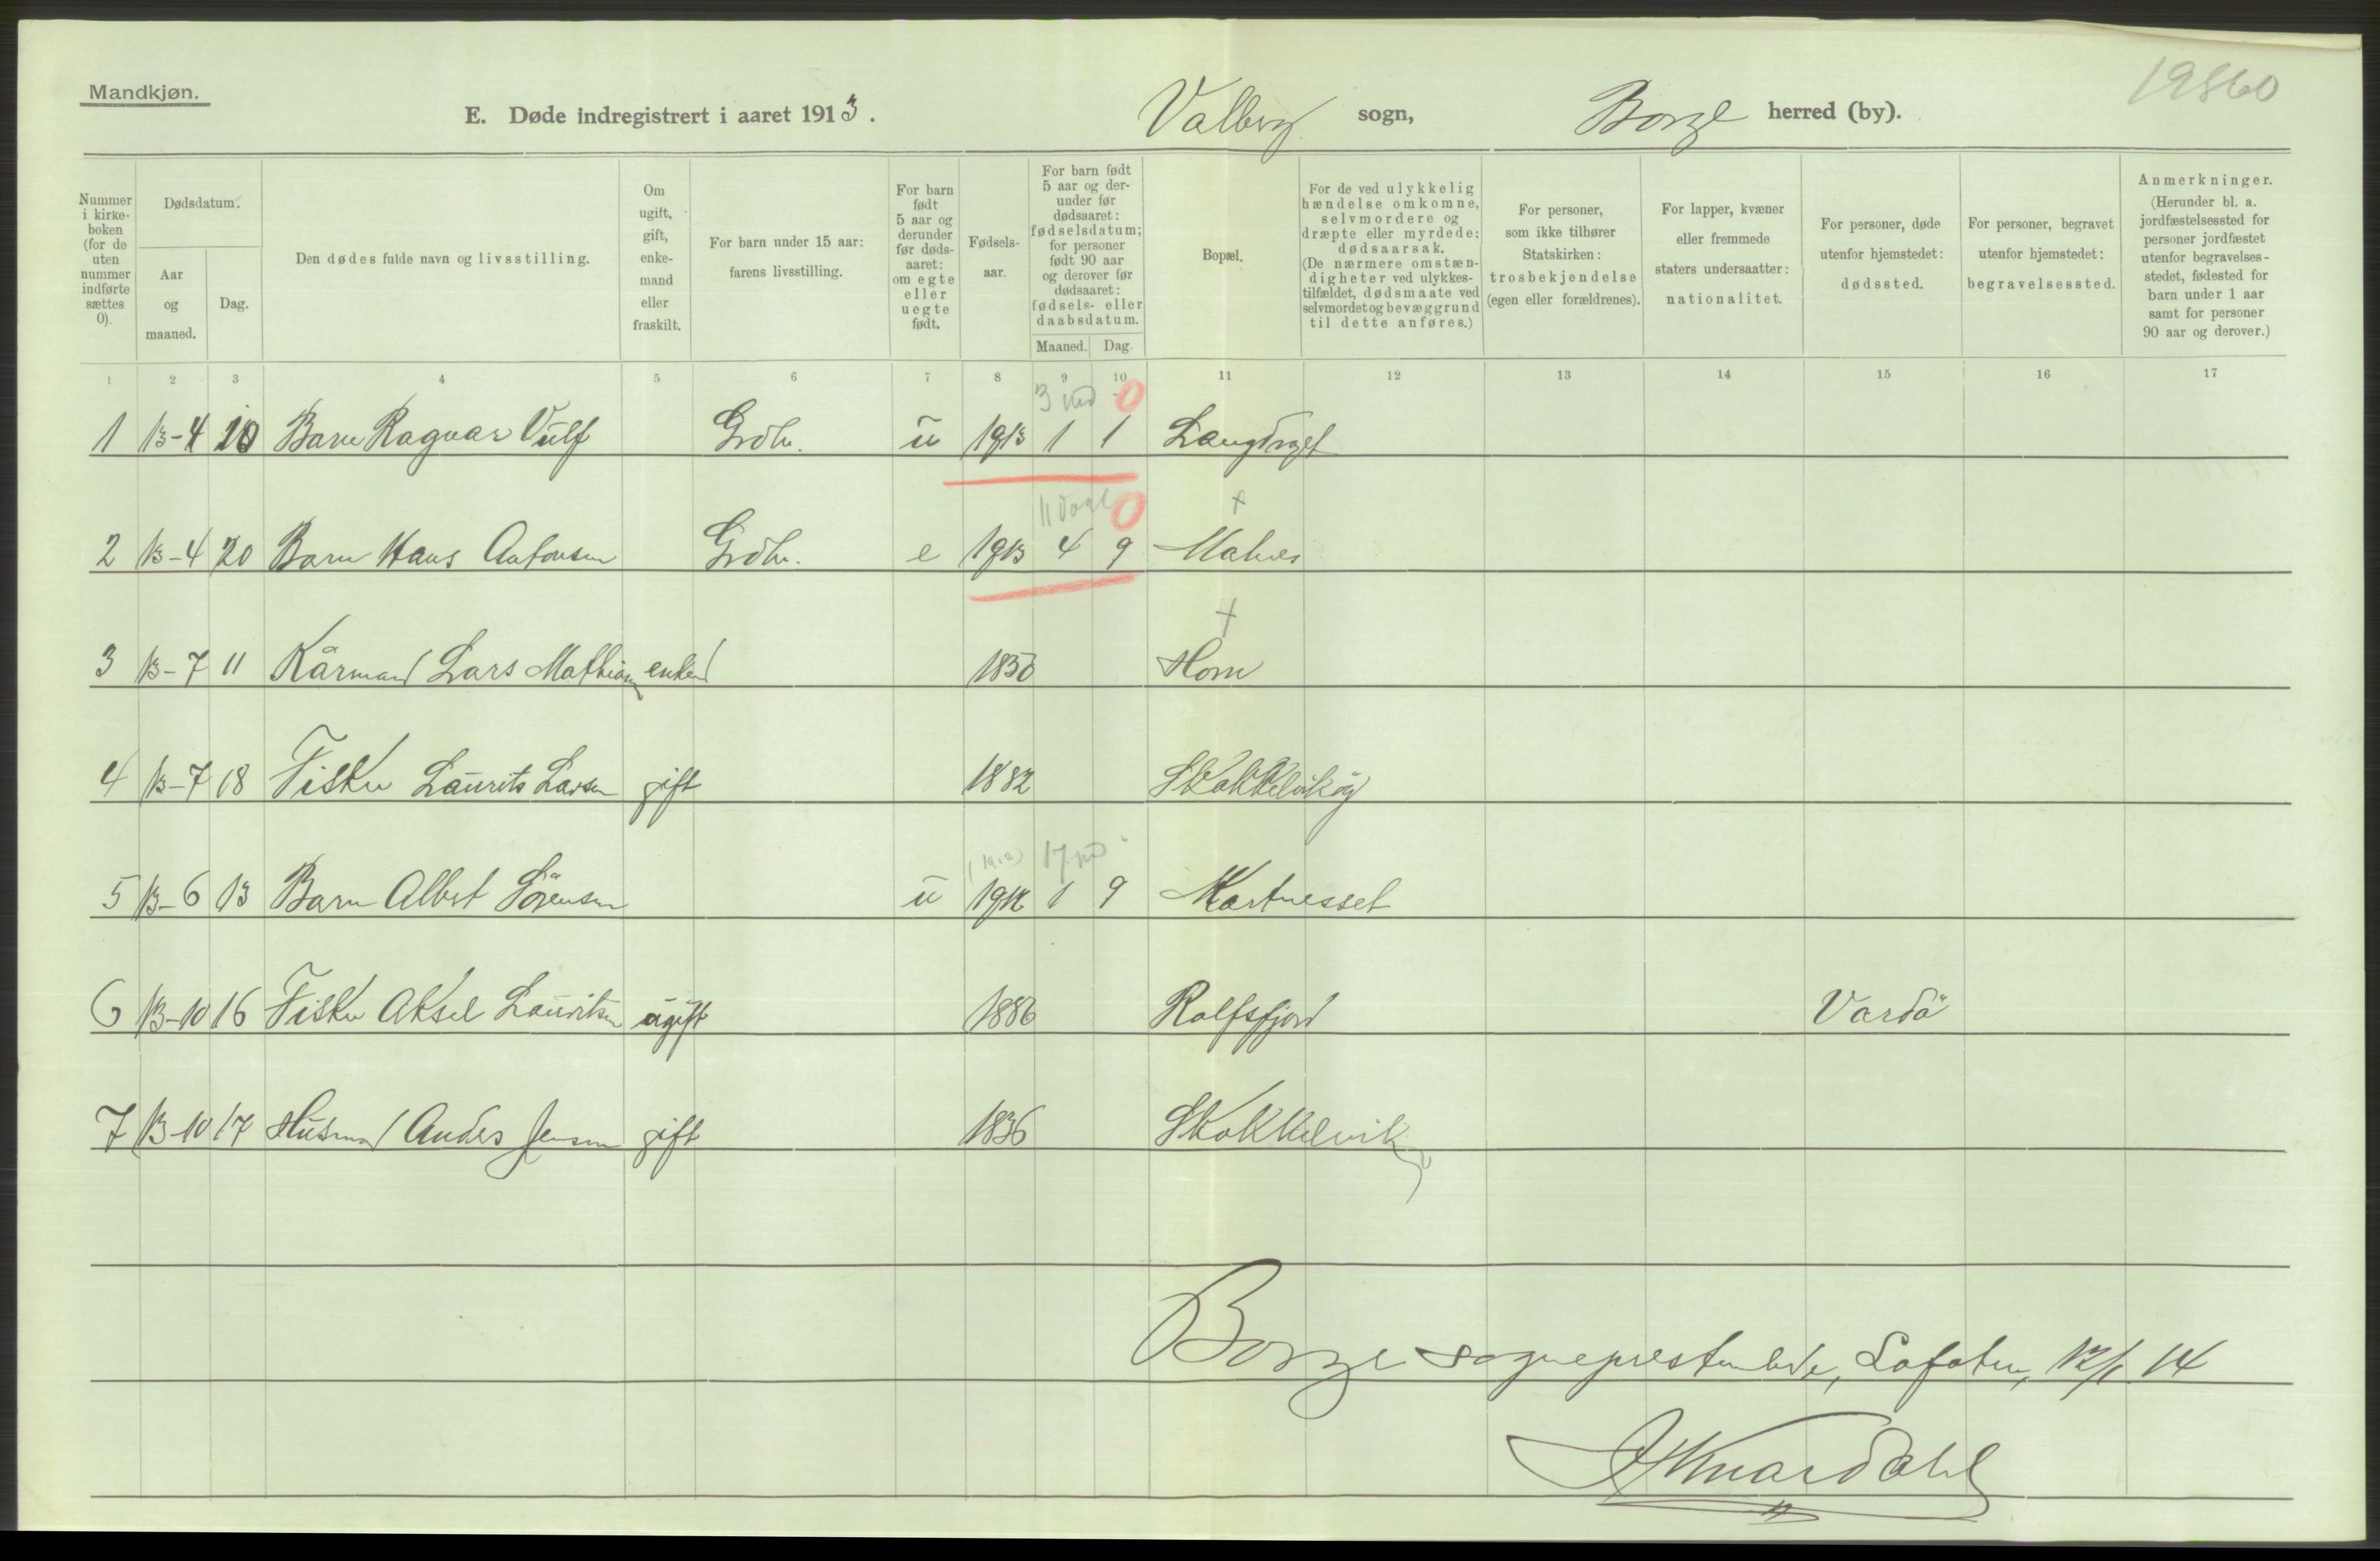 Mandkjøn.
19860
E. Døde indregistrert i aaret 1913. Valberg sogn, Borge herred (by).
Nummer i kirke-boken (for de uten nummer indførte sættes 0).
Dødsdatum.
Aar og maaned.
Dag.
Den dødes fulde navn og livsstilling.
Om ugift, gift, enke-mand eller fraskilt.
For barn under 15 aar: farens livsstilling.
For barn født 5 aar og derunder før døds-aaret: om egte eller uegte født.
Fødsels-aar.
For barn født 5 aar og der-under før dødsaaret: fødselsdatum; for personer født 90 aar og derover før dødsaaret: fødsels- eller daabsdatum.
Maaned. Dag.
Bopæl.
For de ved ulykkelig hændelse omkomne, selvmordere og dræpte eller myrdede: dødsaarsak. (De nærmere omstæn-digheter ved ulykkes-tilfældet, dødsmaate ved selvmordet og bevæggrund til dette anføres.)
For personer, som ikke tilhører Statskirken: trosbekjendelse (egen eller forældrenes).
For lapper, kvæner eller fremmede staters undersaatter: nationalitet.
For personer, døde utenfor hjemstedet: dødssted.
For personer, begravet utenfor hjemstedet: begravelsessted.
Anmerkninger. (Herunder bl. a. jordfæstelsessted for personer jordfæstet utenfor begravelses-stedet, fødested for barn under 1 aar samt for personer 90 aar og derover.)
1 2 3 4 5 6 7 8 9 10 11 12 13 14 15 16 17
3 md 0
1 13-4 10 Barn Ragnar Vulf Grdbr. u 1913 1 1 Langdraget
11 dage 0 +
2 13-4 20 Barn Hans Antonsen Grdbr. e 1913 4 9 Malnes
+
3 13-7 11 Kårmand Lars Mathiasen enkem 1850 Horn
4 13-7 18 Fisker Laurits Larsen gift 1882 Skokkelvikøy
(1912) 17 md
5 13-6 13 Barn Albert Sörensen u 1912 1 9 Kartnesset
6 13-10 16 Fisker Aksel Lauritsen ugift 1886 Rolfsfjord Vardö
7 13-10 17 Husmand Anders Jensen gift 1836 Skokkelvik
Borge sogneprestembede, Lofoten, 12/1 14
A Knardahl